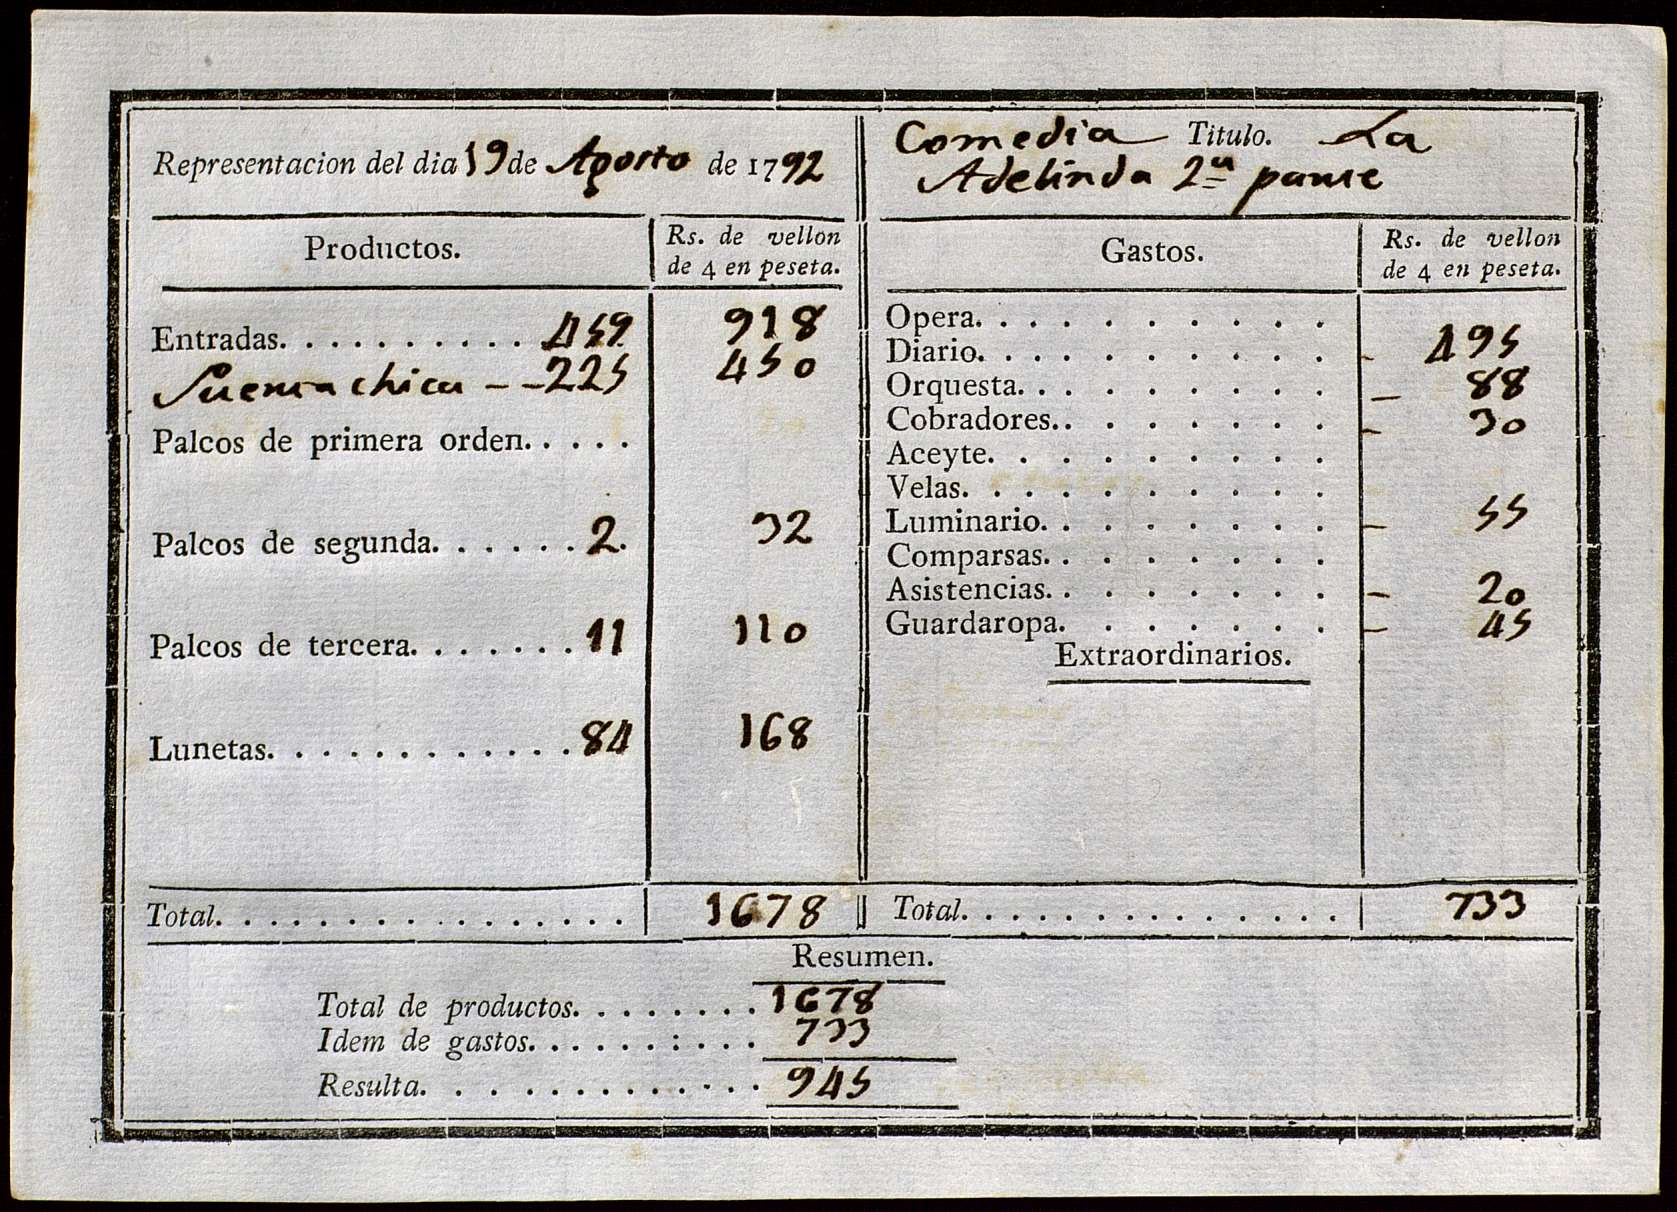 Representacion del dia 19 de Agosto de 1792
Productos. Rs. de vellon de 4 en peseta.
Entradas. . . . . . . . . . 459. 918
Puerta chica - - 225 450
Palcos de primera orden. . . . .
Palcos de segunda. . . . . . 2. 32
Palcos de tercera. . . . . . . 11 110
Lunetas. . . . . . . . . . . . 84 168
Total. . . . . . . . . . . . . . . 1678
Comedia Titulo. La
Adelinda 2ª parte
Gastos. Rs. de vellon de 4 en peseta.
Opera. . . . . . . . . .
Diario. . . . . . . . . . - 495
Orquesta. . . . . . . . - 88
Cobradores. . . . . . . . - 30
Aceyte. . . . . . . . .
Velas. . . . . . . . . .
Luminario. . . . . . . . - 55
Comparsas. . . . . . . .
Asistencias. . . . . . . . - 20
Guardaropa. . . . . . . - 45
Extraordinarios.
Total. . . . . . . . . . . . . . 733
Resumen.
Total de productos. . . . . . . . 1678
Idem de gastos. . . . . . : . . . 733
Resulta. . . . . . . . . . . . . 945